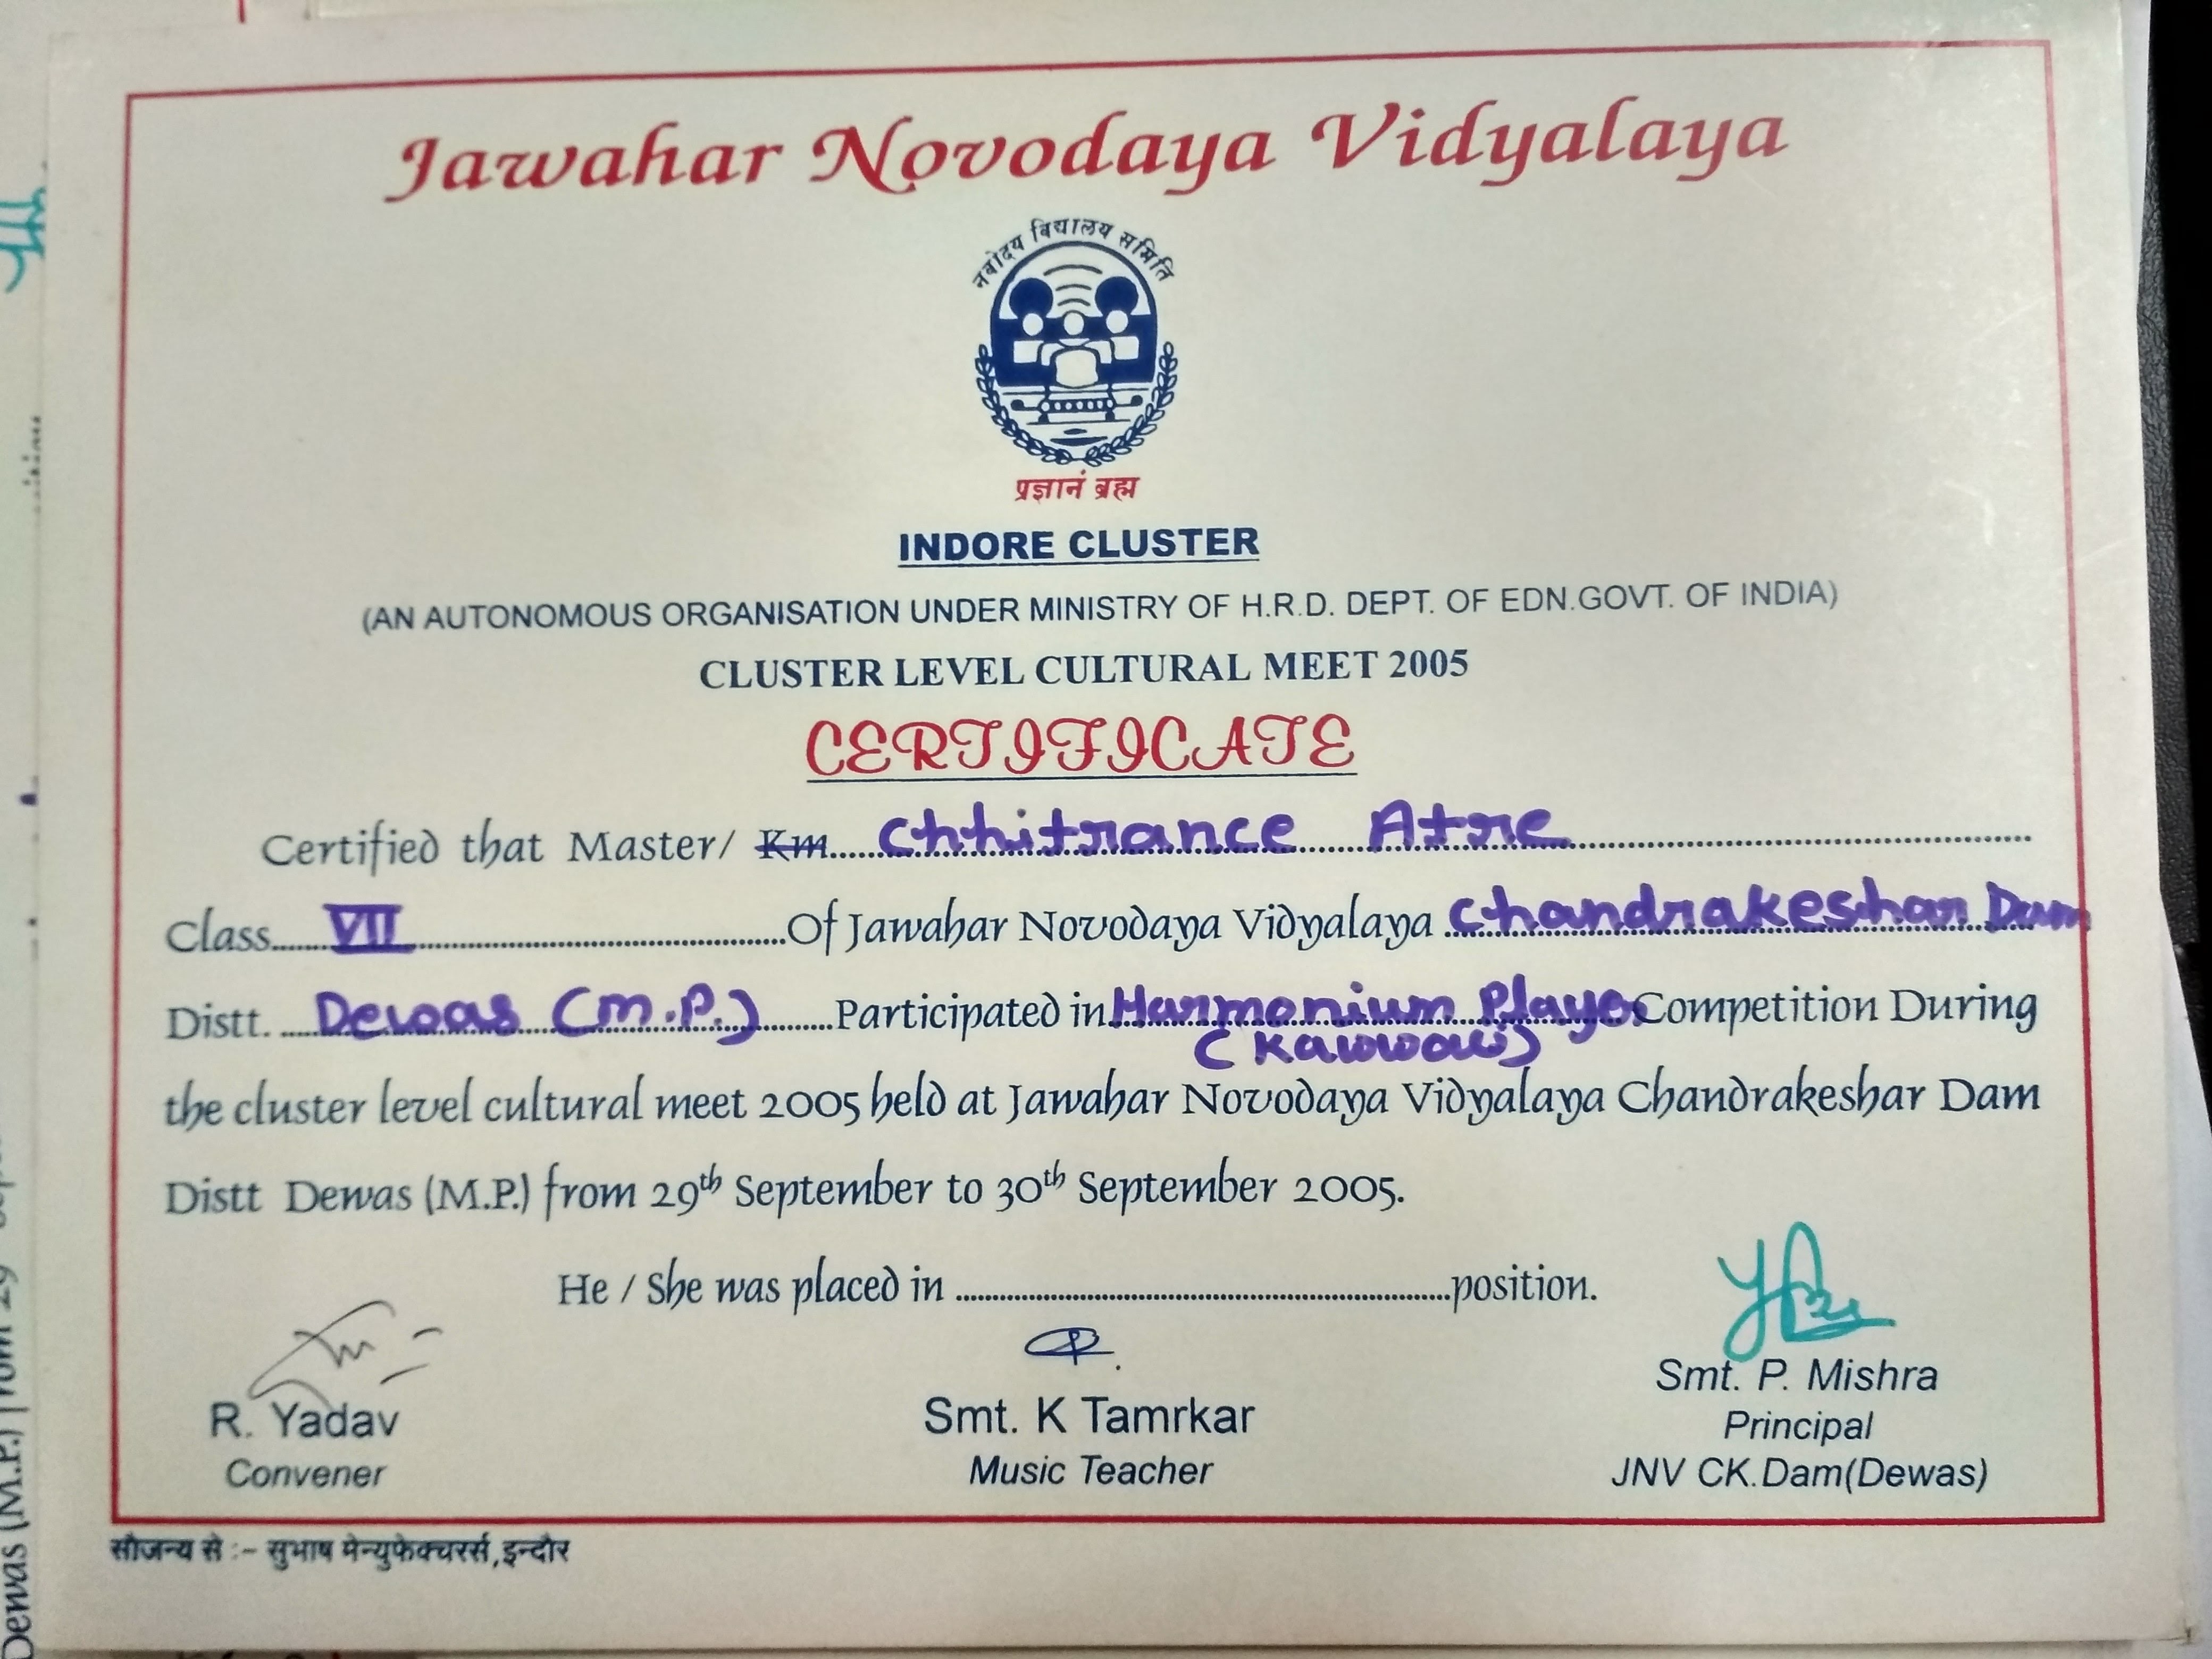 Jawahar Novodaya Vidyalaya
नवोदय विद्यालय समिति
प्रज्ञानं ब्रह्म
INDORE CLUSTER
(AN AUTONOMOUS ORGANISATION UNDER MINISTRY OF H.R.D. DEPT. OF EDN.GOVT. OF INDIA)
CLUSTER LEVEL CULTURAL MEET 2005
CERTIFICATE
Certified that Master/ Km Chhitrance Atre
Class VII Of Jawahar Novodaya Vidyalaya Chandrakeshar Dam
Distt. Dewas (M.P.) Participated in Harmonium Player Competition During
(Kawwali)
the cluster level cultural meet 2005 held at Jawahar Novodaya Vidyalaya Chandrakeshar Dam
Distt Dewas (M.P.) from 29th September to 30th September 2005.
He / She was placed in ..........position.
R. Yadav
Convener
Smt. K Tamrkar
Music Teacher
Smt. P. Mishra
Principal
JNV CK.Dam(Dewas)
सौजन्य से :- सुभाष मेन्युफेक्चरर्स,इन्दौर
Dewas (M.P.) from 29